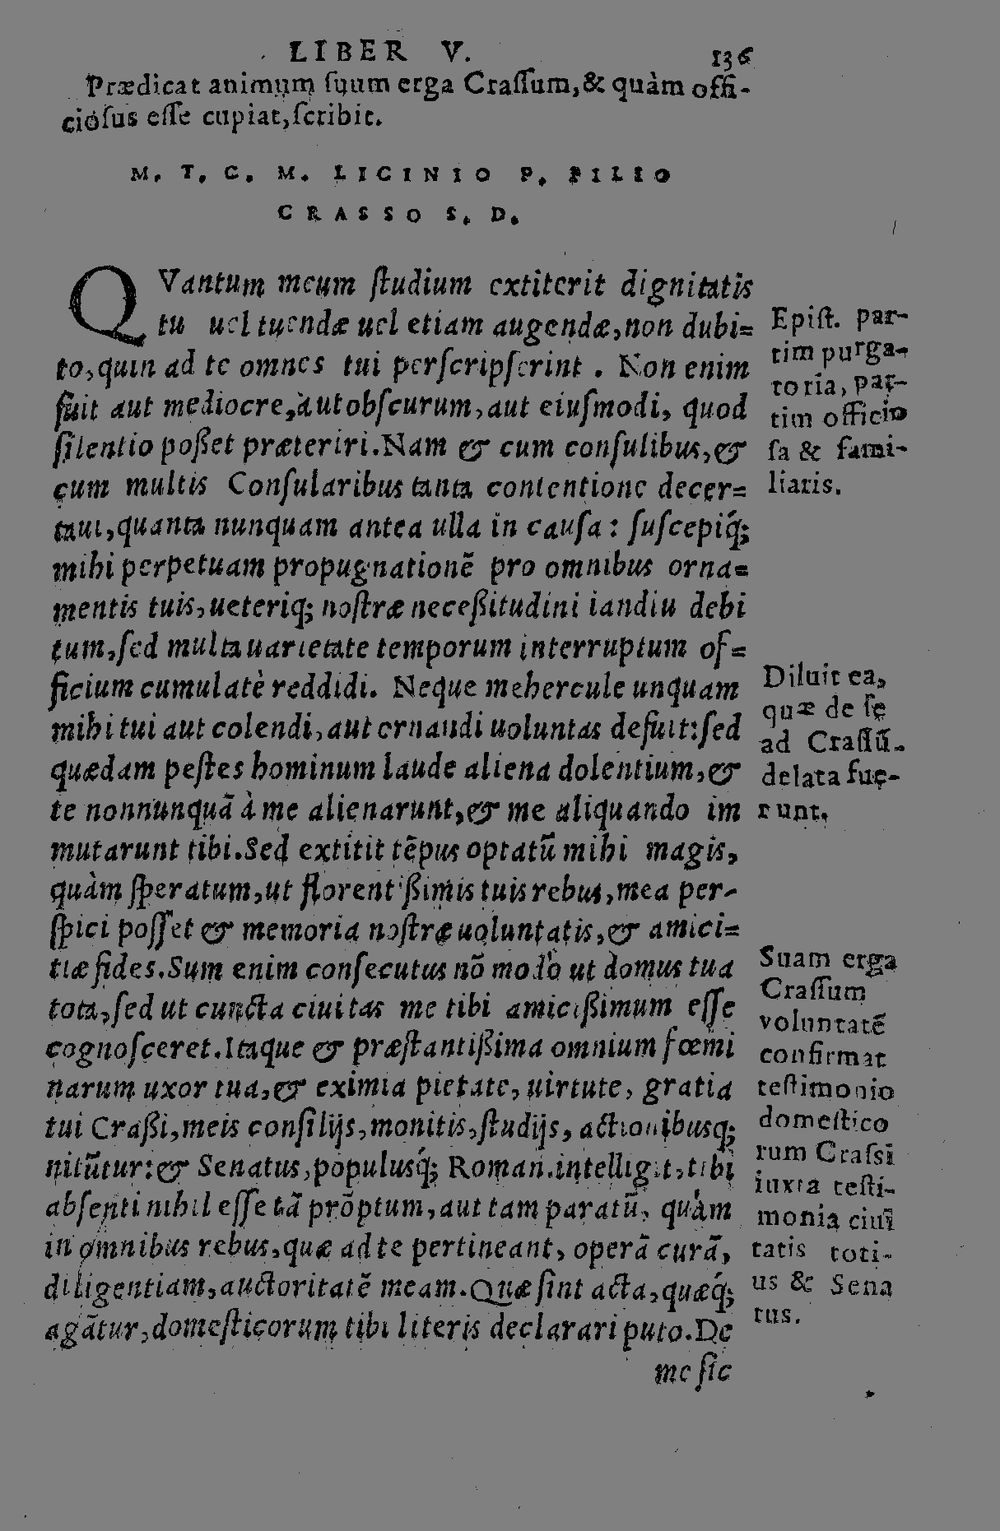 LIBER V. 136
Prædicat animum suum erga Crassum, & quàm offi-
ciosus esse cupiat, scribit.
M. T. C. M. LICINIO P. FILIO
CRASSO S. D.
QVantum meum ſtudium extiterit dignitatis
tu uel tuendæ uel etiam augendæ, non dubi=
to, quin ad te omnes tui perſcripſerint. Non enim
fuit aut mediocre, aut obſcurum, aut eiuſmodi, quod
ſilentio poßet præteriri. Nam & cum conſulibus, &
cum multis Conſularibus tanta contentione decer=
taui, quanta nunquam antea ulla in cauſa: ſuſcepiq́;
mihi perpetuam propugnationẽ pro omnibus orna=
mentis tuis, ueteriq; noſtræ neceßitudini iandiu debi
tum, ſed multa uarietate temporum interruptum of=
ficium cumulatè reddidi. Neque mehercule unquam
mihi tui aut colendi, aut ornandi uoluntas defuit: ſed
quædam peſtes hominum laude aliena dolentium, &
te nonnunquã à me alienarunt, & me aliquando im
mutarunt tibi. Sed extitit tẽpus optatũ mihi magis,
quàm ſperatum, ut florentißimis tuis rebus, mea per-
ſpici poſſet & memoria noſtræ uoluntatis, & amici=
tiæ fides. Sum enim conſecutus nõ modò ut domus tua
tota, ſed ut cuncta ciuitas me tibi amicißimum eſſe
cognoſceret. Itaque & præſtantißima omnium fœmi
narum uxor tua, & eximia pietate, uirtute, gratia
tui Craßi, meis conſilijs, monitis, ſtudijs, actionibusq;
nitũtur: & Senatus, populusq́; Roman. intelligit, tibi
abſenti nihil eſſe tã prõptum, aut tam paratũ, quàm
in omnibus rebus, quæ ad te pertineant, operã curã,
diligentiam, auctoritatẽ meam. Quæ ſint acta, quæq́;
agãtur, domeſticorum tibi literis declarari puto. De
me ſic
Epiſt. par-
tim purga-
toria, par-
tim officio
ſa & fami-
liaris.
Diluit ea,
quæ de ſe
ad Craſſũ
delata fue-
runt.
Suam erga
Craſſum
voluntatẽ
confirmat
teſtimonio
domeſtico
rum Craſsi
iuxta teſti-
monia ciui
tatis toti-
us & Sena
tus.